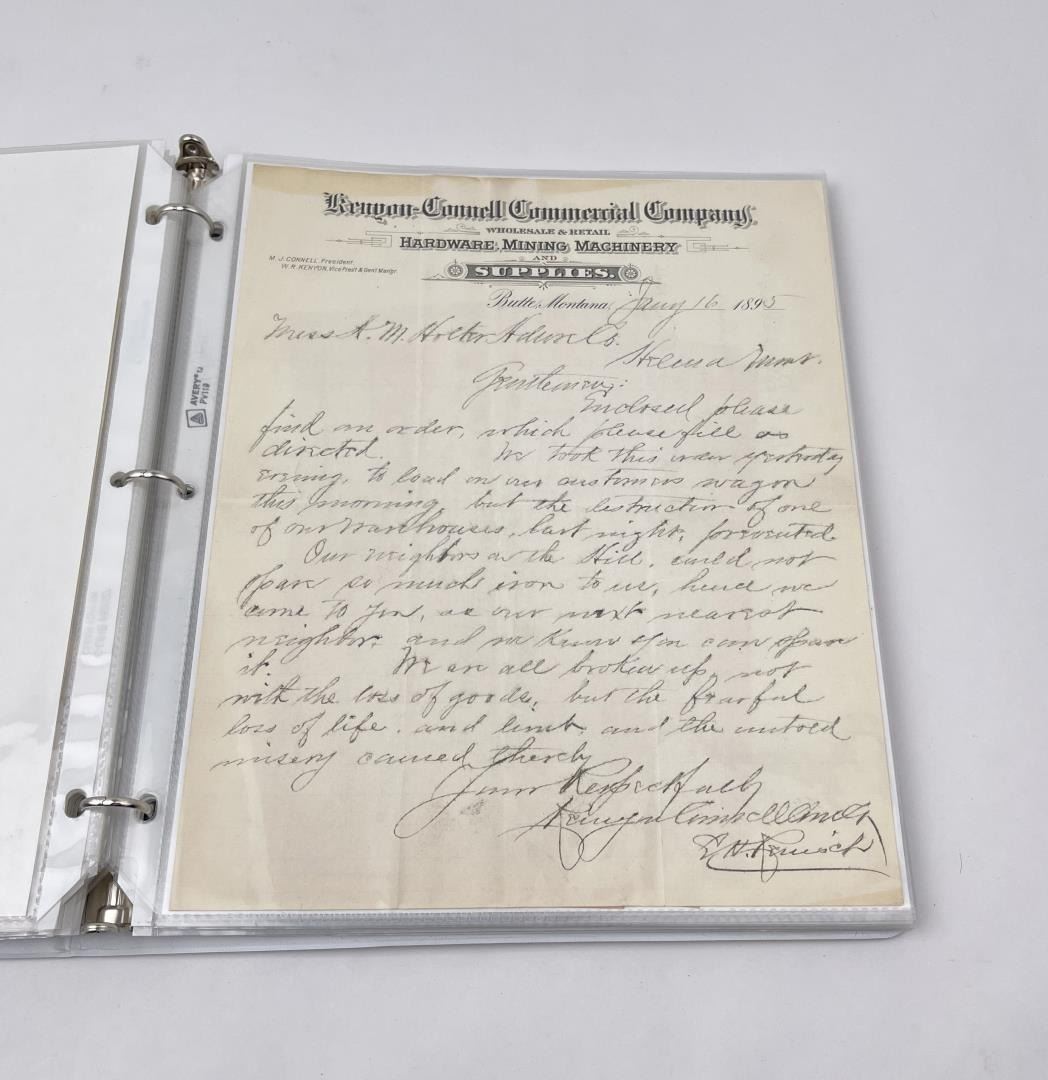 Kenyon-Connell Commercial Company,
WHOLESALE & RETAIL
HARDWARE, MINING MACHINERY
AND
SUPPLIES.
M. J. CONNELL, President.
W. R. KENYON, Vice Prest & Genl Mangr.
Butte, Montana, Jany 16 1895
Mess A. M. Holter Hdwre Co.
Helena Mont.
Gentlemen:
Enclosed please
find an order, which please fill as
directed. We took this order yesterday
evening, to load on our customers wagon
this morning but the destruction of one
of our warehouses, last night, prevented.
Our neighbors on the Hill, could not
spare so much iron to us, hence we
come to you, as our next nearest
neighbor, and we know you can spare
it. We are all broken up, not
with the loss of goods, but the fearful
loss of life, and limb, and the untold
misery caused thereby
Your Respectfully
Kenyon Connell Com Co
E. H.
AVERY
PV119